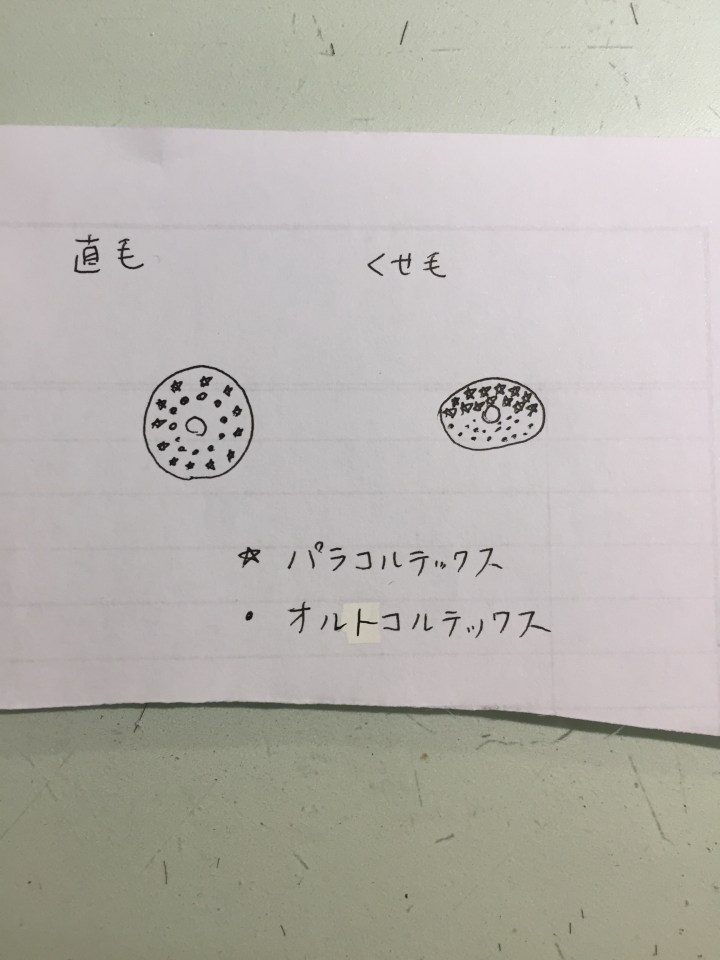 直毛
くせ毛
☆ パラコルテックス
・ オルトコルテックス